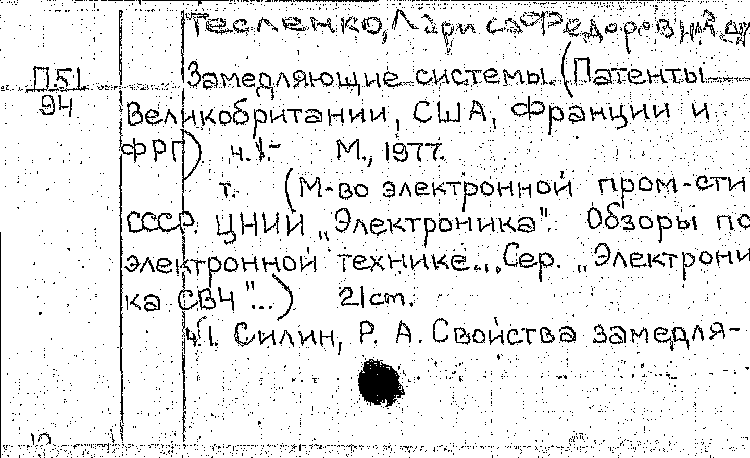 Тесленко, Лариса Федоровна и др
П51
94
Замедляющие системы (Патенты
Великобритании, США, Франции и
ФРГ) ч.1.- М., 1977.
т. (М-во электронной пром-сти
СССР. ЦНИИ „Электроника". Обзоры по
электронной технике... Сер. „Электрони
ка СВЧ"...) 21cm.
ч.1. Силин, Р. А. Свойства замедля-